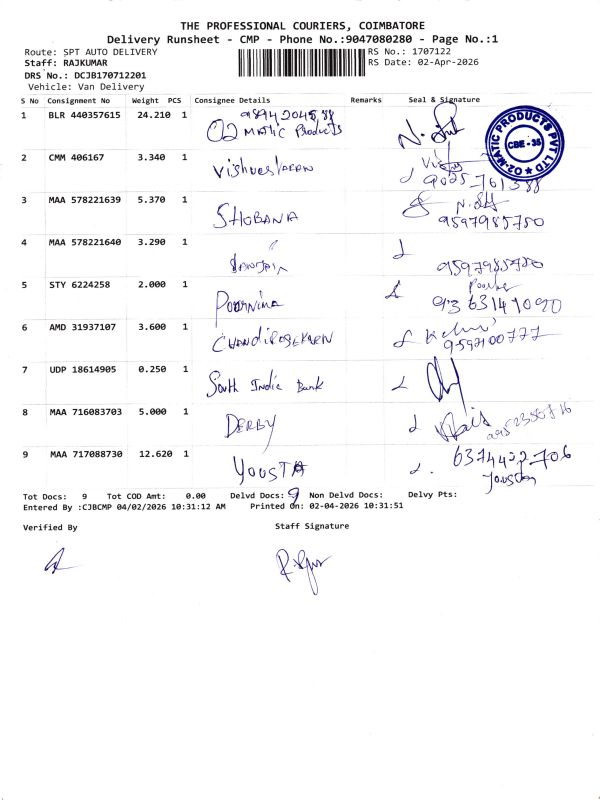 THE PROFESSIONAL COURIERS, COIMBATORE
Delivery Runsheet - CMP - Phone No.:9047080280 - Page No.:1
Route: SPT AUTO DELIVERY
Staff: RAJKUMAR
DRS No.: DCJB170712201
Vehicle: Van Delivery
RS No.: 1707122
RS Date: 02-Apr-2026
S No Consignment No Weight PCS Consignee Details Remarks Seal & Signature
1 BLR 440357615 24.210 1 O2 MATIC Products
O2-MATIC PRODUCTS PVT LTD ★ CBE - 35
2 CMM 406167 3.340 1
3 MAA 578221639 5.370 1 SHOBANA 9597985750
4 MAA 578221640 3.290 1
5 STY 6224258 2.000 1 Poornima
6 AMD 31937107 3.600 1
7 UDP 18614905 0.250 1 South India Bank
8 MAA 716083703 5.000 1 DERBY
9 MAA 717088730 12.620 1 YOUSTA
Tot Docs: 9 Tot COD Amt: 0.00 Delvd Docs: 9 Non Delvd Docs: Delvy Pts:
Entered By :CJBCMP 04/02/2026 10:31:12 AM Printed On: 02-04-2026 10:31:51
Verified By Staff Signature